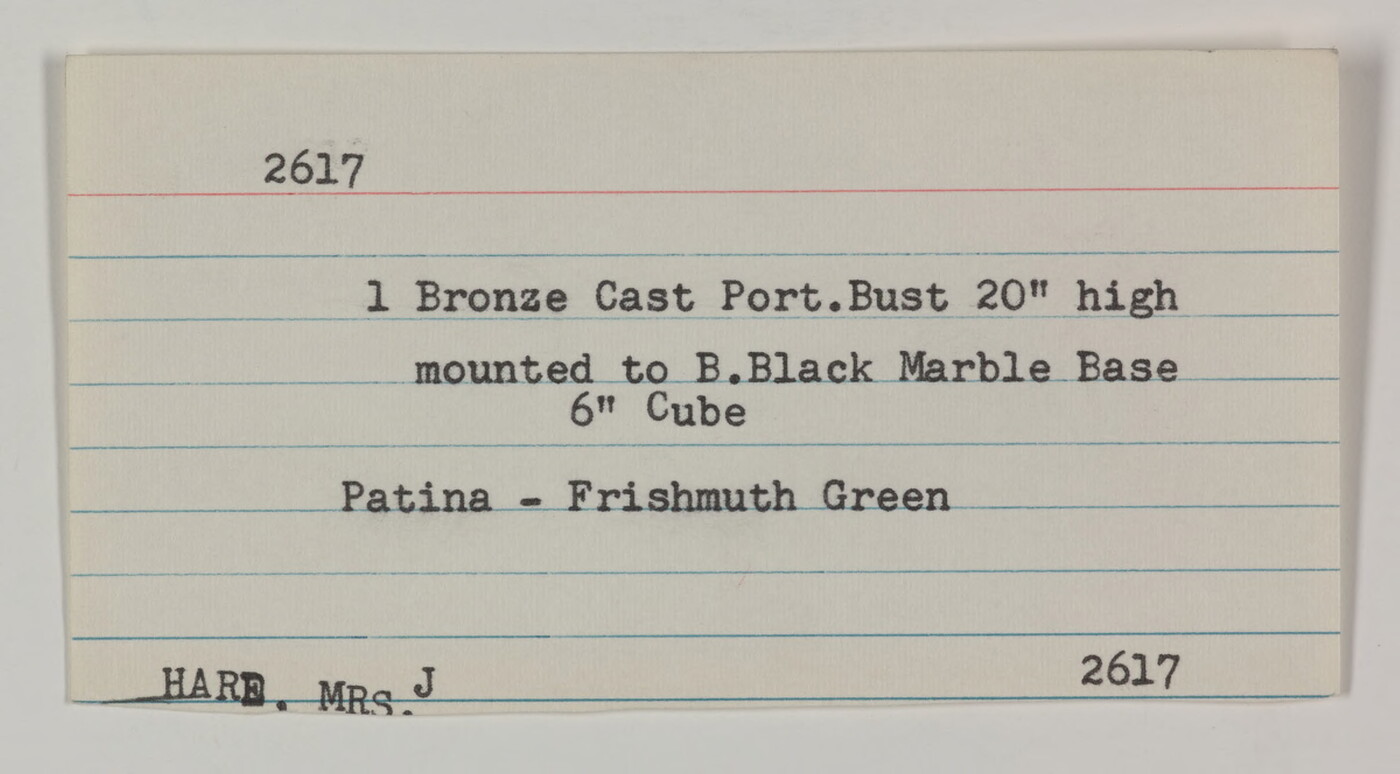 2617
1 Bronze Cast Port.Bust 20" high
mounted to B.Black Marble Base
6" Cube
Patina - Frishmuth Green
HARE. MRS. J
2617